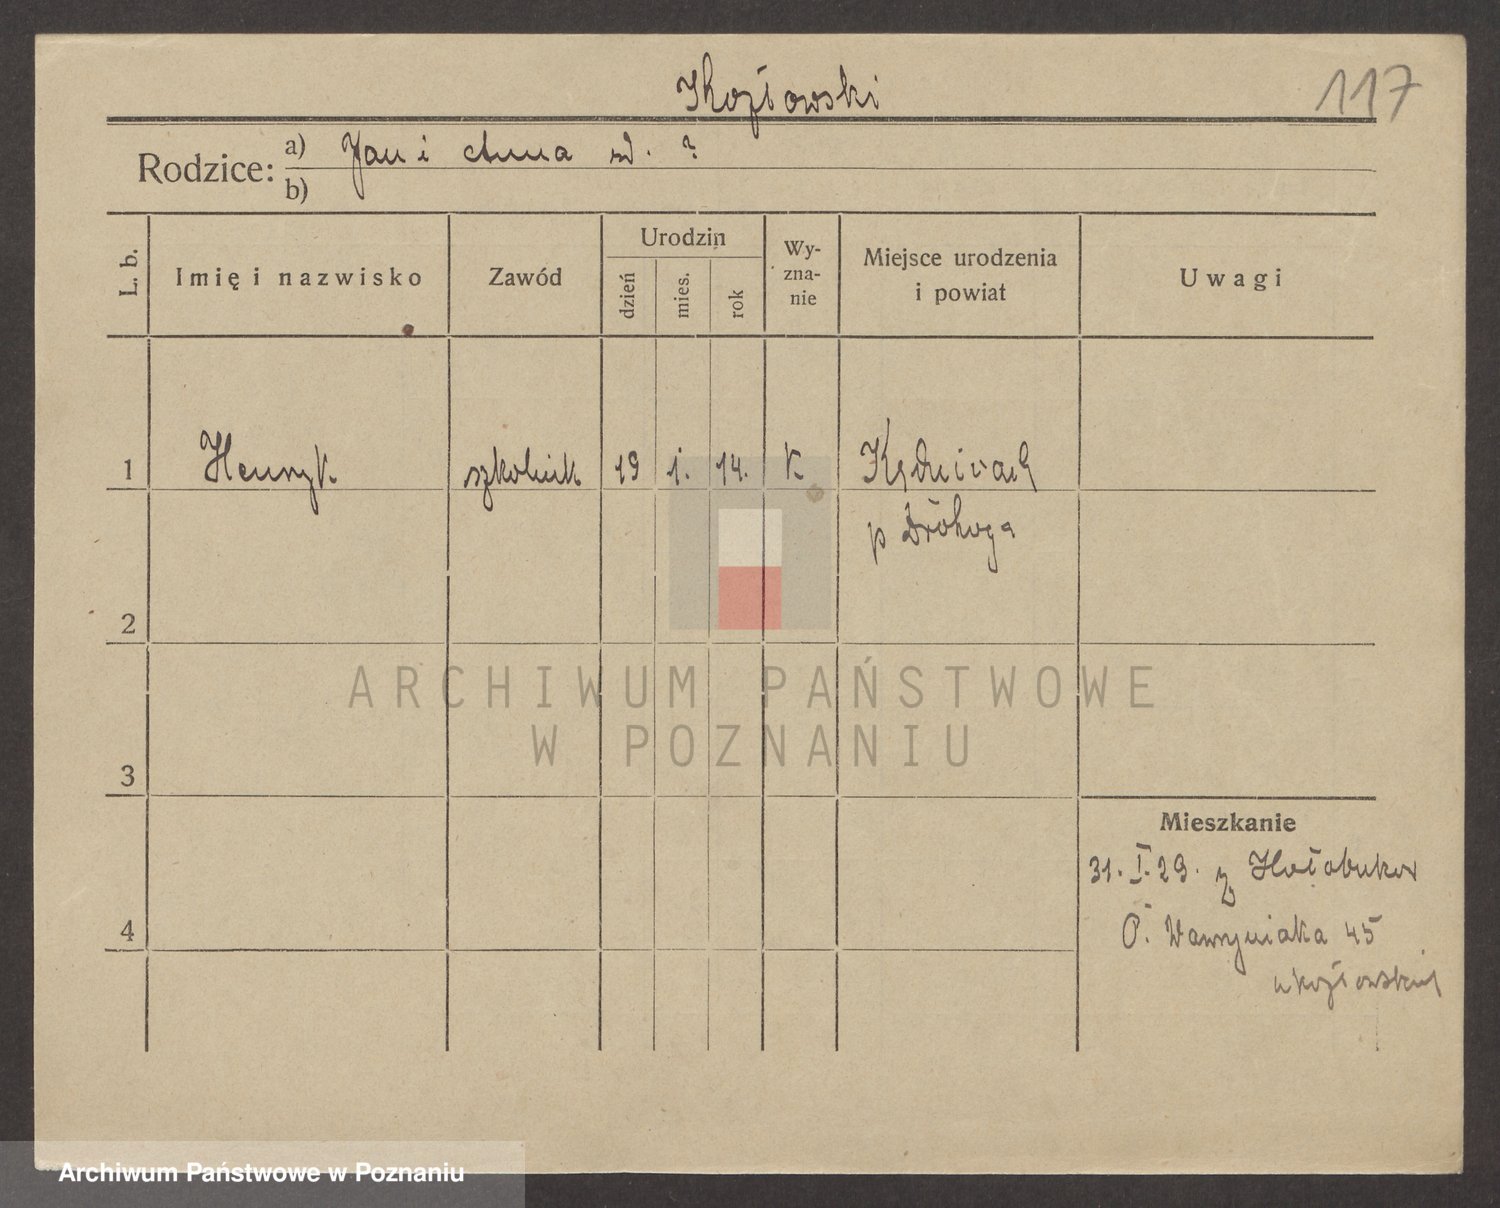 Kozłowski
117
Rodzice: a) Jan i Anna zd. ?
b)
L. b.
Imię i nazwisko
Zawód
Urodzin
dzień
mies.
rok
Wy-
zna-
nie
Miejsce urodzenia
i powiat
Uwagi
1 Henryk szkolnik 19 1. 14. K
p
2
3
4
Mieszkanie
31. I. 29. z
O. Wawrzyniaka 45
ARCHIWUM PAŃSTWOWE
W POZNANIU
Archiwum Państwowe w Poznaniu